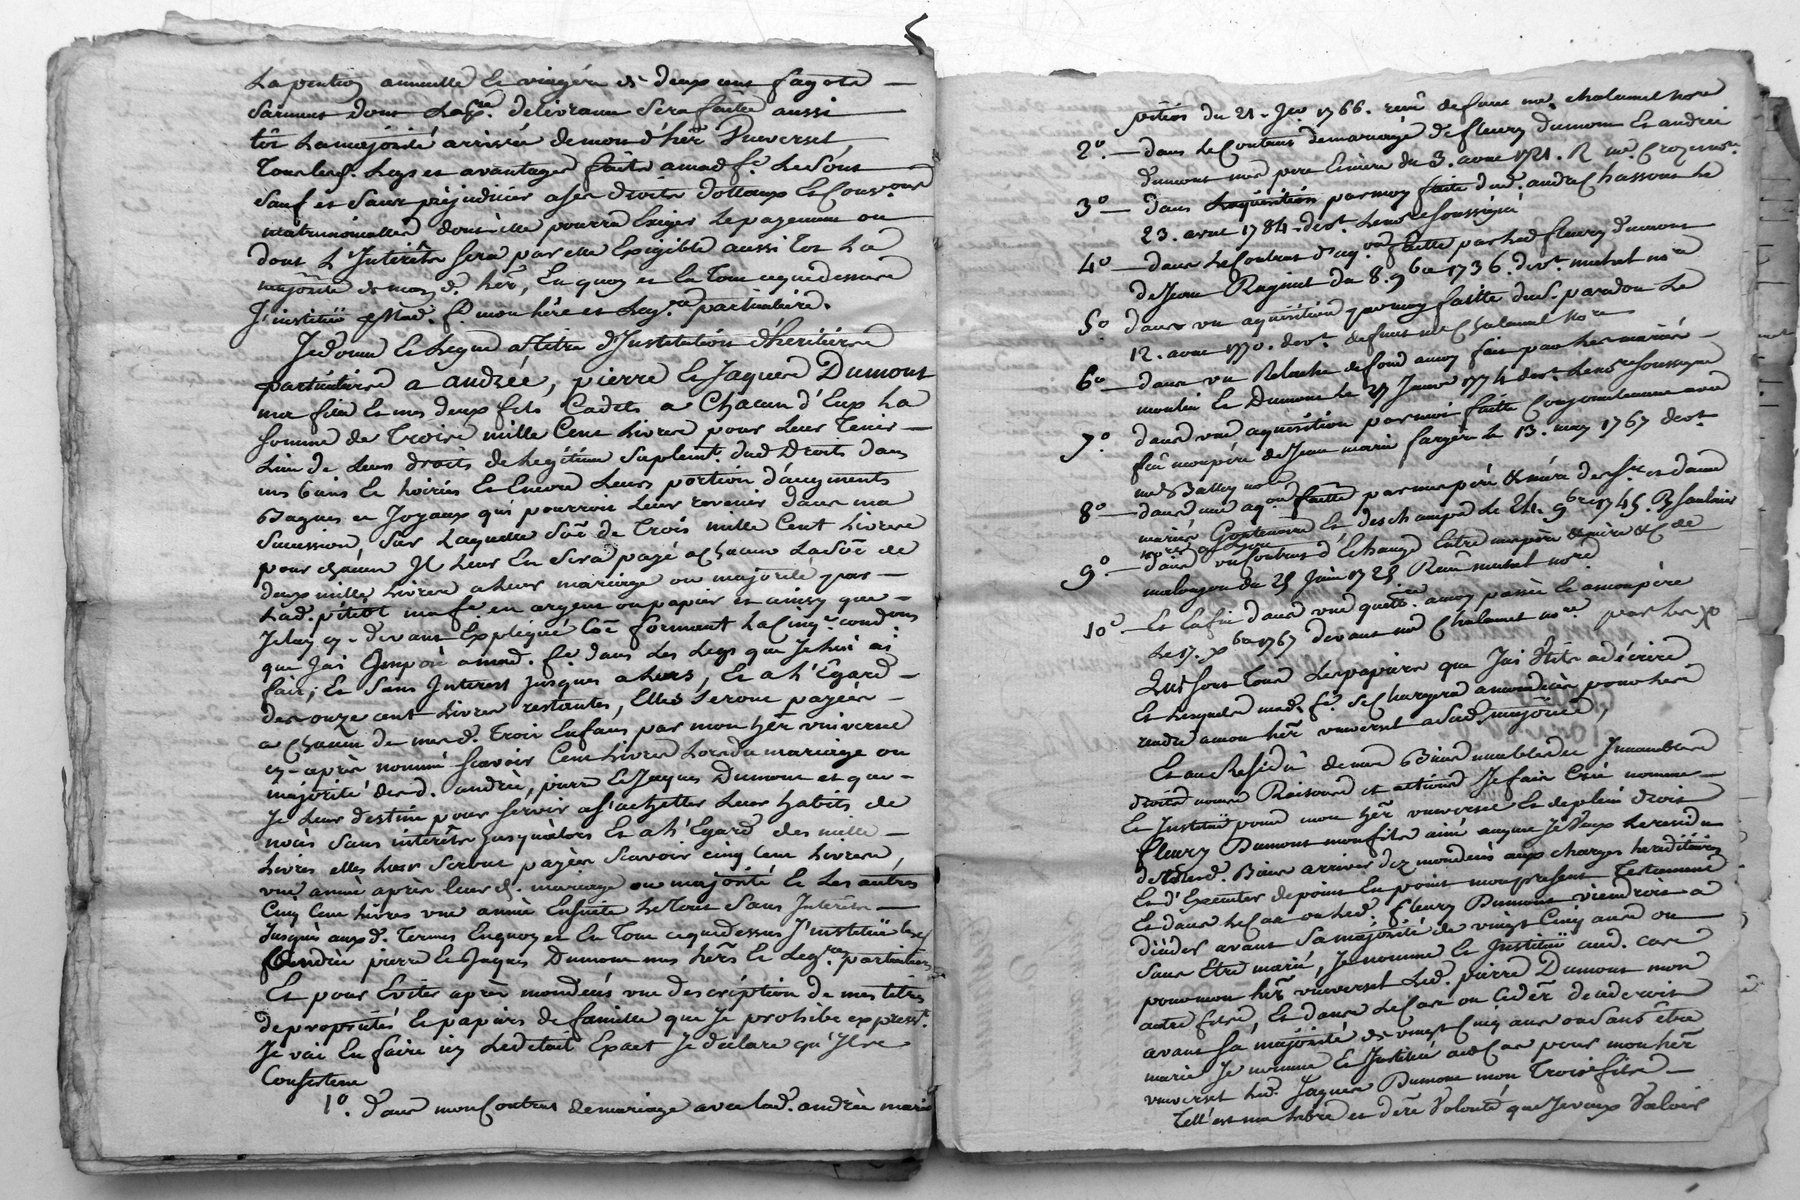 La pention annuelle et viagère de deux cent fagots
sarments dont delivrance sera faitte aussi
tôt la majorité arrivée de mon d. hér. universel
legs et avantages faits a mad. fe. le sont
sauf et sans préjudicier a ses droits dottaux et
matrimoniallea dont elle pourra exiger le payement ou
dont l'Interêts sera par elle Exigible aussi tot la
majorité de mon d. hér, En quoy et en Tout ce que dessus
J'instituë Mad. fe. mon hére et Leg.re particuliére.
Je donne et Legue a titre d'Institution d'heritière
particuliere a andrée, pierre et Jaques Dumont
ma fille et mes deux fils Cadets a Chacun d'Eux la
somme de Trois mille Cent Livres pour leur Tenir
Lieu de Leurs droits de Legitime suplemt. dud Droits dans
mes biens et hoirie et Encore Leurs portion d'augments
Bagues et Joyaux qui pourroit leur revenir dans ma
sucession, sur Laquelle sôe de Trois mille Cent Livres
pour chacun Il leur En sera payé a chacun la sôe de
deux mille Livres a leur mariage ou majorité par
Lad. ma fe en argent ou papier et ainsy que
Je l'ay cy-devant Expliqué côe formant la Cinqe. condon
que J'ai Imposé a mad. fe. dans les legs que Je lui ai
fair; Et sans Interest jusques alors, Et a l'Egard
des onze cent Livres restantes, Elles seront payées
a Chacun de mesd. Trois Enfans par mon hér universel
cy-après nommé sçavoir Cent Livres lors du mariage ou
majorité desd. andrée, pierre et Jaques Dumont et que
Je leur destine pour servir a s'achetter Leur habits de
noces sans intérêts jusqu'alors Et a l'Egard des mille
Livres elles leur seront payées Scavoir cinq Cent Livres,
une année après leur d. mariage ou majorité et Les autres
Cinq Cent Livres une année Ensuite le Tout sans Interêts
Jusques auxd. Termes Enquoy et En Tout ce que dessus J'instituë
andrée pierre et Jaques Dumont mes hérs et Leg.res particuliers
Et pour Eviter après mon décés une description de mes titres
de propriétés et papiers de famille que Je prohibe expresst.
Je vai En faire icy Le detail Exact Je déclare qu'Ils
Consistent
1o. dans mon Contrat de mariage avec lad. andrée marie
du 21. Jer. 1766. reçu defunt me. chalumel nore
2o. dans Le Contrat de mariage de fleury dumont Et andrée
dumont mes pere Et mère du 3. avril 1721. R me.
3o dans Laquisition par moy faitte dud. andre Chassont le
23. avril 1784. devt. Le nore soussigné
4o dans Le Contrat d'aq.on faitte par led fleury dumont
de Jeane Raginet du 8. 9bre 1736. devt. nore
5o dans un aquisition par moy faitte dud. pardon Le
12. avril 1770. devt. defunt me Chalumel nore
6o dans un Relache de fond a moy fait par les mariés
moulin Et Dumont le 27 Janvr 1774 devt. Le nore soussigné
7o dans une aquisition par moi faitte Conjointement avec
feu mon pére de Jean marie fargére le 13. may 1767 devt.
me Balley nore
8o dans une aq.on faitte par mes pére & mére des Sr. et dame
mariés Et deschamps Le 24. 9bre 1745.
9o dans un Contrat d'Echange Entre mes pére & mére & de
malvagon du 25 Juin 1725 Reçu nore
10o Et Enfin dans une quittce a moy passée Et a mon pére
Le 17. Xbre 1767 devant me Chalumel nore par les
Quy sont Tous Les papiers que J'ai Etits a décrire
Et lesquels mad. fe. se chargera a mon décés pour les
rendre a mon hér universel a sad. majorité,
Et au Residu de mes Biens meubles et Immeubles
droits noms Raisons et actions Je fais Crée nomme
Et Instituë pour mon hér universel Et de plein droit
fleury Dumont mon fils ainé auquel Je Veux le residu
de tousd. Biens arriver dez mon décés aux charges hereditaires
Et d'Executer de point En point mon present Testament
Et dans le Cas ou led. fleury Dumont viendroit a
décéder avant sa majorité de vingt Cinq ans ou
sans Etre marié, Je nomme Et Instituë aud. cas
pour mon hér universel Led. pierre Dumont mon
autre fils, Et dans le Cas ou ce dér décederoit
avant sa majorité de vingt Cinq ans ou sans être
marié Je nomme Et Institué aud Cas pour mon hér
universel led. Jaques Dumont mon Troise. fils
Tell'est ma Libre et dére Volonté que Je veux Valoir